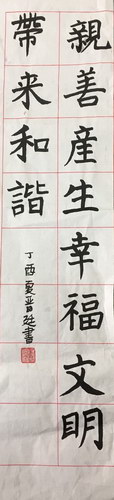 親善産生幸福文明
帶来和諧
丁酉夏晋廷書